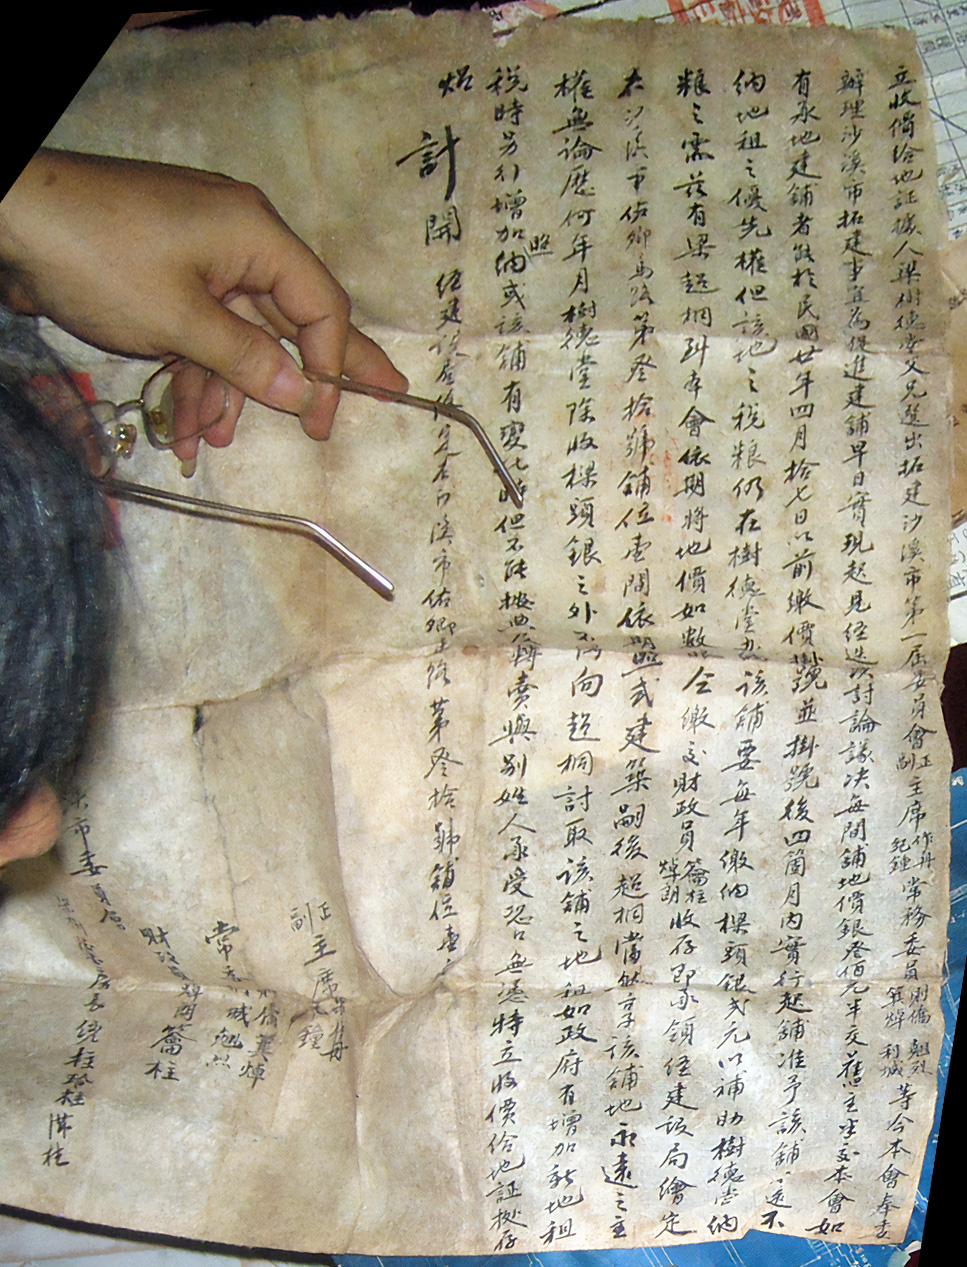 立收價給地証據人梁樹德堂父兄選出拓建沙溪市第一屆委員會正副主席作舟紀鐘常務委員則儒箕焯翹烈利城等今本會奉委
辦理沙溪市拓建事宜為促進建舖早日實現起見經迭次討論議决每間舖地價銀叁佰元半交舊主半交本會如
有承地建舖者能於民國廿年四月拾七日以前繳價號並掛號後四箇月內實行起舖准予該舖永遠不
納地租之優先權但該地之税粮仍在樹德堂該舖要每年繳納樑頭銀弍元以補助樹德堂納
粮之需茲有梁超桐到本會依期將地價如數仝繳交財政員籥柱焯朗收存即承領經建設局繪定
在沙溪市佑卿馬路第叁拾號舖位壹間依照式建築嗣後超桐當然享該舖地永遠之主
權無論歷何年月樹德堂除收樑頭銀之外不得向超桐討取該舖之地租如政府有增加新地租
税時另行增加納或該舖有變化時但不能按典轉賣與別姓人承受恐口無憑特立收價給地証据存
照
計開 經建設局復定在沙溪市佑卿馬路第叁拾號舖位壹
正副主席作舟紀鐘
常務 則儒箕焯利城翹烈
財政員焯朗籥柱
市委員會
房長經柱 柱 滿柱